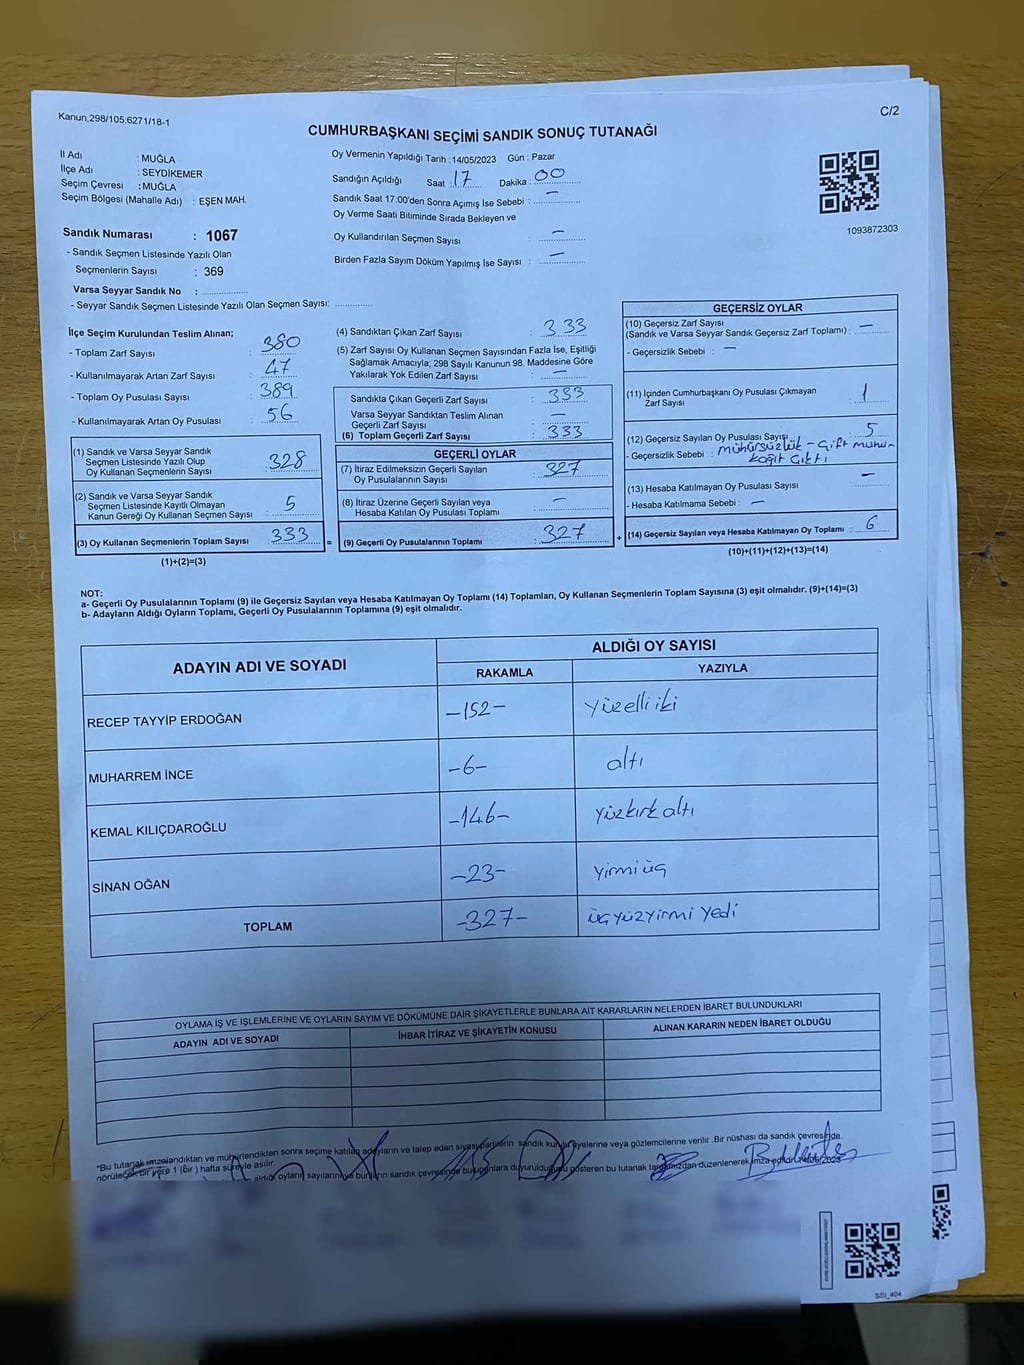 Kanun,298/105;6271/18-1
C/2
CUMHURBAŞKANI SEÇİMİ SANDIK SONUÇ TUTANAĞI
İl Adı : MUĞLA
İlçe Adı : SEYDİKEMER
Seçim Çevresi : MUĞLA
Seçim Bölgesi (Mahalle Adı) : EŞEN MAH.
Oy Vermenin Yapıldığı Tarih : 14/05/2023 Gün : Pazar
Sandığın Açıldığı Saat : 17 Dakika : 00
Sandık Saat 17:00'den Sonra Açımış İse Sebebi : —
Oy Verme Saati Bitiminde Sırada Bekleyen ve
Oy Kullandırılan Seçmen Sayısı : —
Birden Fazla Sayım Döküm Yapılmış İse Sayısı : —
1093872303
Sandık Numarası : 1067
- Sandık Seçmen Listesinde Yazılı Olan
Seçmenlerin Sayısı : 369
Varsa Seyyar Sandık No :
- Seyyar Sandık Seçmen Listesinde Yazılı Olan Seçmen Sayısı:
İlçe Seçim Kurulundan Teslim Alınan;
- Toplam Zarf Sayısı : 380
- Kullanılmayarak Artan Zarf Sayısı : 47
- Toplam Oy Pusulası Sayısı : 389
- Kullanılmayarak Artan Oy Pusulası : 56
(1) Sandık ve Varsa Seyyar Sandık
Seçmen Listesinde Yazılı Olup
Oy Kullanan Seçmenlerin Sayısı : 328
(2) Sandık ve Varsa Seyyar Sandık
Seçmen Listesinde Kayıtlı Olmayan
Kanun Gereği Oy Kullanan Seçmen Sayısı : 5
(3) Oy Kullanan Seçmenlerin Toplam Sayısı : 333 =
(1)+(2)=(3)
(4) Sandıktan Çıkan Zarf Sayısı : 333
(5) Zarf Sayısı Oy Kullanan Seçmen Sayısından Fazla İse, Eşitliği
Sağlamak Amacıyla; 298 Sayılı Kanunun 98. Maddesine Göre
Yakılarak Yok Edilen Zarf Sayısı : —
Sandıkta Çıkan Geçerli Zarf Sayısı : 333
Varsa Seyyar Sandıktan Teslim Alınan
Geçerli Zarf Sayısı : —
(6) Toplam Geçerli Zarf Sayısı : 333
GEÇERLİ OYLAR
(7) İtiraz Edilmeksizin Geçerli Sayılan
Oy Pusulalarının Sayısı : 327
(8) İtiraz Üzerine Geçerli Sayılan veya
Hesaba Katılan Oy Pusulası Toplamı : —
(9) Geçerli Oy Pusulalarının Toplamı : 327 +
GEÇERSİZ OYLAR
(10) Geçersiz Zarf Sayısı
(Sandık ve Varsa Seyyar Sandık Geçersiz Zarf Toplamı) : —
- Geçersizlik Sebebi : —
(11) İçinden Cumhurbaşkanı Oy Pusulası Çıkmayan
Zarf Sayısı : 1
(12) Geçersiz Sayılan Oy Pusulası Sayısı : 5
- Geçersizlik Sebebi : mühürsüzlük - Çift mühür
kağıt çıktı
(13) Hesaba Katılmayan Oy Pusulası Sayısı : —
- Hesaba Katılmama Sebebi : —
(14) Geçersiz Sayılan veya Hesaba Katılmayan Oy Toplamı : 6
(10)+(11)+(12)+(13)=(14)
NOT:
a- Geçerli Oy Pusulalarının Toplamı (9) ile Geçersiz Sayılan veya Hesaba Katılmayan Oy Toplamı (14) Toplamları, Oy Kullanan Seçmenlerin Toplam Sayısına (3) eşit olmalıdır. (9)+(14)=(3)
b- Adayların Aldığı Oyların Toplamı, Geçerli Oy Pusulalarının Toplamına (9) eşit olmalıdır.
ADAYIN ADI VE SOYADI
ALDIĞI OY SAYISI
RAKAMLA YAZIYLA
RECEP TAYYİP ERDOĞAN -152- yüzelliiki
MUHARREM İNCE -6- altı
KEMAL KILIÇDAROĞLU -146- yüzkırkaltı
SİNAN OĞAN -23- yirmiüç
TOPLAM -327- üçyüzyirmi yedi
OYLAMA İŞ VE İŞLEMLERİNE VE OYLARIN SAYIM VE DÖKÜMÜNE DAİR ŞİKAYETLERLE BUNLARA AİT KARARLARIN NELERDEN İBARET BULUNDUKLARI
ADAYIN ADI VE SOYADI İHBAR İTİRAZ VE ŞİKAYETİN KONUSU ALINAN KARARIN NEDEN İBARET OLDUĞU
*Bu tutanak imzalandıktan ve mühürlendikten sonra seçime katılan adayların ve talep eden siyasi partilerin sandık kurulu üyelerine veya gözlemcilerine verilir. Bir nüshası da sandık çevresinde
görülecek bir yere 1 (bir ) hafta süreyle asılır.
aldığı oyların sayılarını ve bunların sandık çevresinde duyurulduğunu gösteren bu tutanak tarafımızdan düzenlenerek imza edildi.
SSI_404